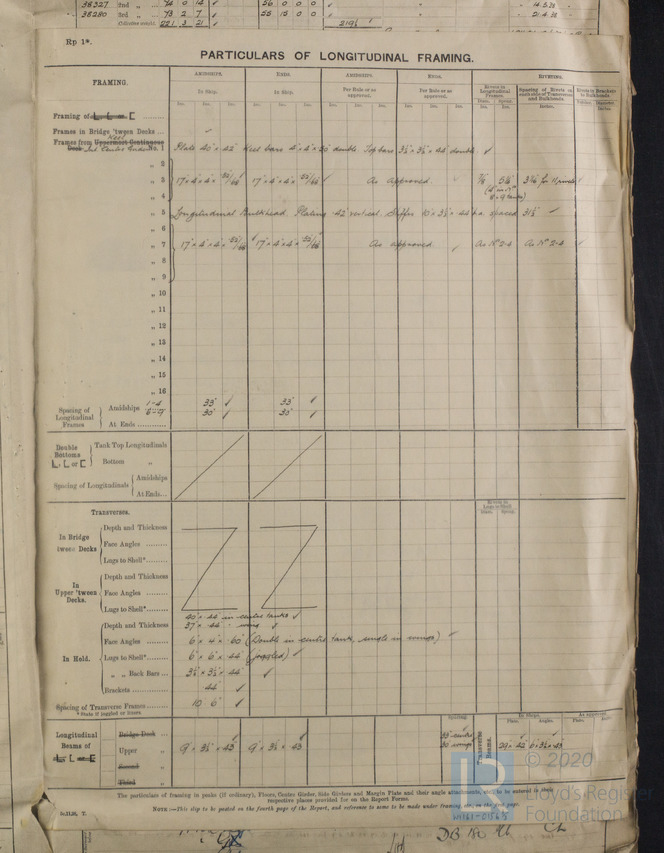 38327 2nd " 74 0 14 ✓ 26 0 0 0 ✓ " 14.5.38
38280 3rd " 73 2 7 ✓ 25 15 0 0 ✓ " 21.4.38
Collective weight. 221 3 21 ✓ 219½
Rp 1*.
PARTICULARS OF LONGITUDINAL FRAMING.
FRAMING. AMIDSHIPS. ENDS. AMIDSHIPS. ENDS. RIVETING.
In Ship. In Ship. Per Rule or as approved. Per Rule or as approved. Rivets in Longitudinal Frames. Spacing of Rivets on each side of Transverses and Bulkheads. Rivets in Brackets to Bulkheads.
Ins. Ins. Ins. Ins. Ins. Ins. Ins. Ins. Ins. Ins. Ins. Ins. Diam. Spcng. Inches. Number. Diameter.
Framing of L, L or [
Frames in Bridge 'tween Decks ... ✓
Keel
Frames from Uppermost Continuous
Deck No. 1 Plate 40 × 42 Keel bars 4 × 4 × 50 double. Top bars 3½ × 3½ × 44 double ✓
" 2
" 3 17 × 4 × 4 × 17 × 4 × 4 × As approved. ✓ 7/8 5¼
" 4
" 5 Longitudinal Bulkhead. Plating 42 vertical. spaced 31½ ✓
" 6
" 7 17 × 4 × 4 × 17 × 4 × 4 × As approved ✓ As Nº 2-4 As Nº 2-4
" 8
" 9
" 10
" 11
" 12
" 13
" 14
" 15
" 16
Spacing of Longitudinal Frames Amidships 1-4 33 ✓ 33 ✓
6-9 30 ✓ 30 ✓
At Ends
Double Bottoms L, L or [ Tank Top Longitudinals
Bottom "
Spacing of Longitudinals Amidships
At Ends...
Transverses. Rivets in Lugs to Shell
Diam. Spcng.
In Bridge 'tween Decks Depth and Thickness
Face Angles
Lugs to Shell*
In Upper 'tween Decks. Depth and Thickness
Face Angles
Lugs to Shell*
40 × 44 in centre tanks ✓
In Hold. Depth and Thickness 37 × 44 " wing ✓
Face Angles 6 × 4 × 60 (Double in centre tank, single in wings) ✓
Lugs to Shell* 6 × 6 × 44 (joggled) ✓
" " Back Bars ... 3½ × 3½ × 44 ✓
Brackets 44 ✓
Spacing of Transverse Frames 10' 6" ✓
* State if joggled or liners.
Longitudinal Beams of L, L or [ Spacing. Transverse Beams. In Ships. As approved
Plate. Angles. Plate. Angles.
Bridge Deck ... 33 centre
Upper " 9 × 3½ × 43 9 × 3½ × 43 30 wings 29 × 42 6 × 3½ × 43
Second "
Third "
The particulars of framing in peaks (if ordinary), Floors, Centre Girder, Side Girders and Margin Plate and their angle attachments, etc., to be entered in their
respective places provided for on the Report Forms.
NOTE:—This slip to be pasted on the fourth page of the Report, and reference to same to be made under framing, etc., on the first page.
© 2020
Lloyd's Register
Foundation